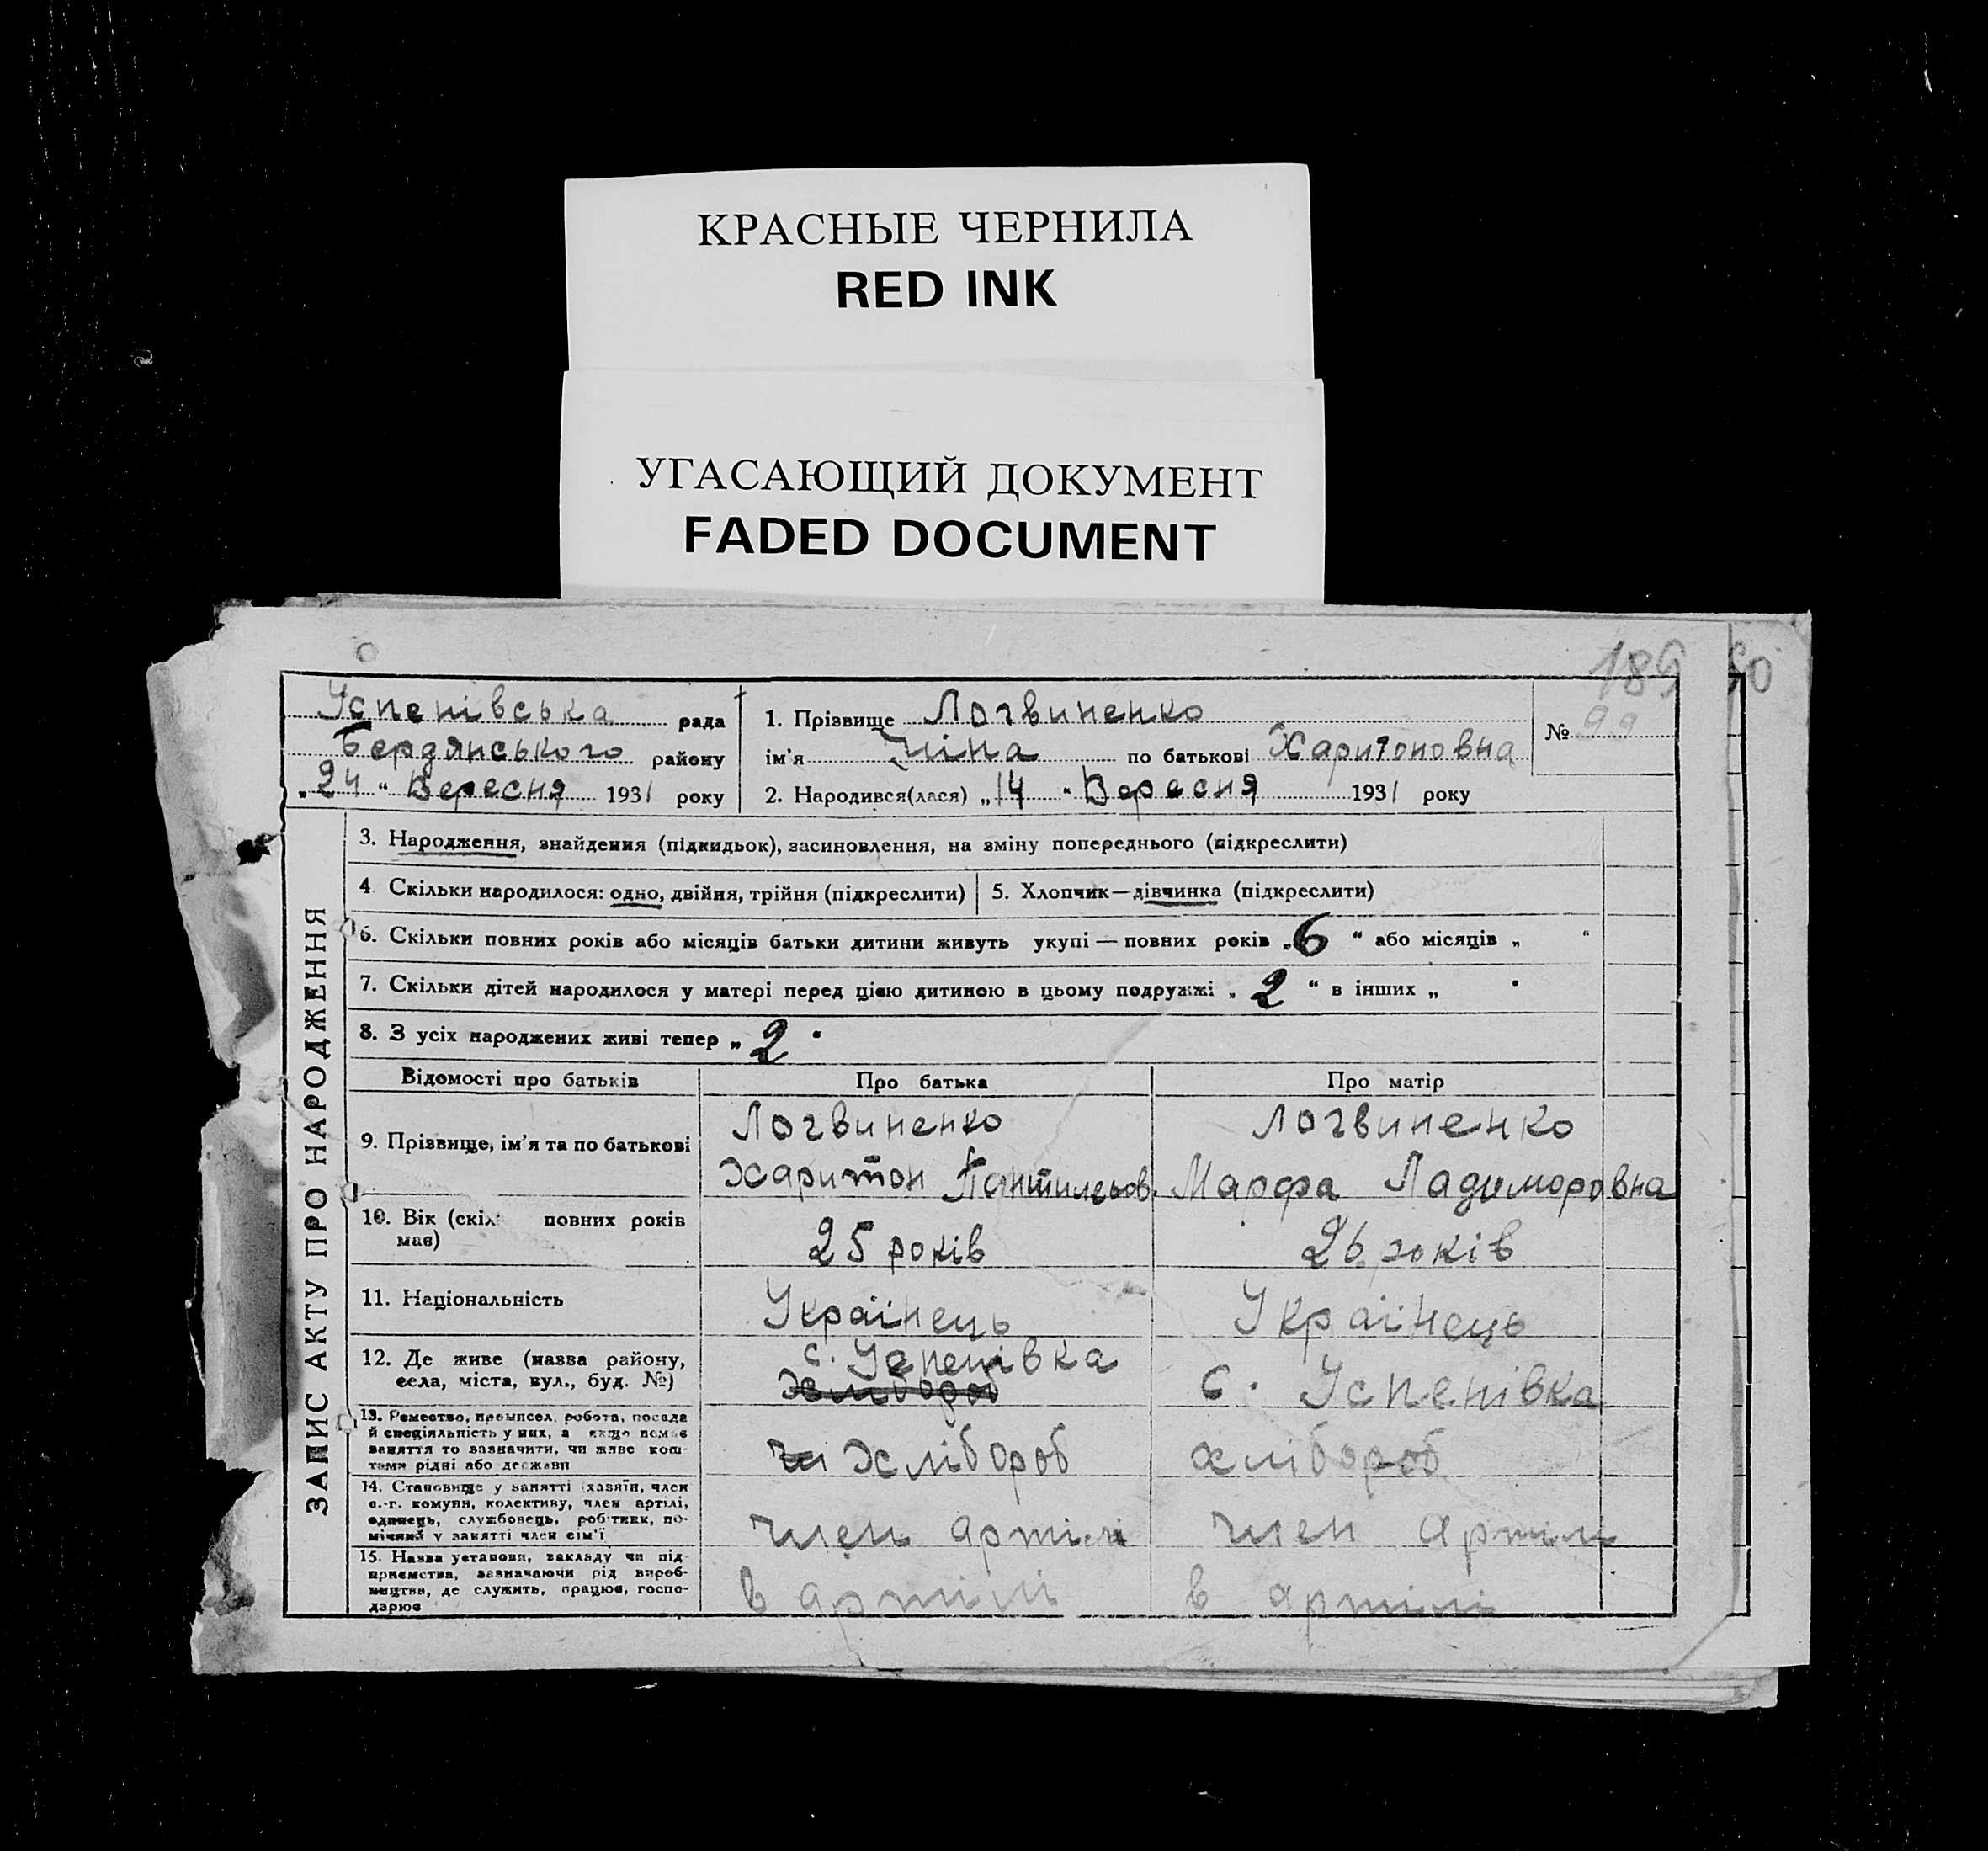 КРАСНЫЕ ЧЕРНИЛА
RED INK
УГАСАЮЩИЙ ДОКУМЕНТ
FADED DOCUMENT
189
Успенівська рада
Бердянського району
„24“ Вересня 1931 року
1. Прізвище Логвиненко
ім'я Ніна по батькові Харитоновна
№ 99
2. Народився(лася) „14“ Вересня 1931 року
ЗАПИС АКТУ ПРО НАРОДЖЕННЯ
3. Народження, знайдення (підкидьок), засиновлення, на зміну попереднього (підкреслити)
4. Скільки народилося: одно, двійня, трійня (підкреслити)
5. Хлопчик—дівчинка (підкреслити)
6. Скільки повних років або місяців батьки дитини живуть укупі — повних років „6“ або місяців „ “
7. Скільки дітей народилося у матері перед цією дитиною в цьому подружжі „2“ в інших „ “
8. З усіх народжених живі тепер „2“
Відомості про батьків Про батька Про матір
9. Прізвище, ім'я та по батькові
Логвиненко
Харитон
Логвиненко
Марфа
10. Вік (скіл повних років
має)
25 років
26 років
11. Національність
Украінець
Украінець
12. Де живе (назва району,
села, міста, вул., буд. №)
с. Успенівка
хлібороб
с. Успенівка
13. Ремество, промисел, робота, посада
й спеціяльність у них, а якщо немає
заняття то зазначити, чи живе кош-
тами рідні або держави
хлібороб
хлібороб
14. Становище у занятті (хазяїн, член
с.-г. комуни, колективу, член артілі,
одинець, службовець, робітник, по-
мічний у занятті член сім'ї
член артілі
член артілі
15. Назва установи, закладу чи під-
приємства, зазначаючи рід вироб-
ництва, де служить, працює, госпо-
дарює
в артілі
в артілі